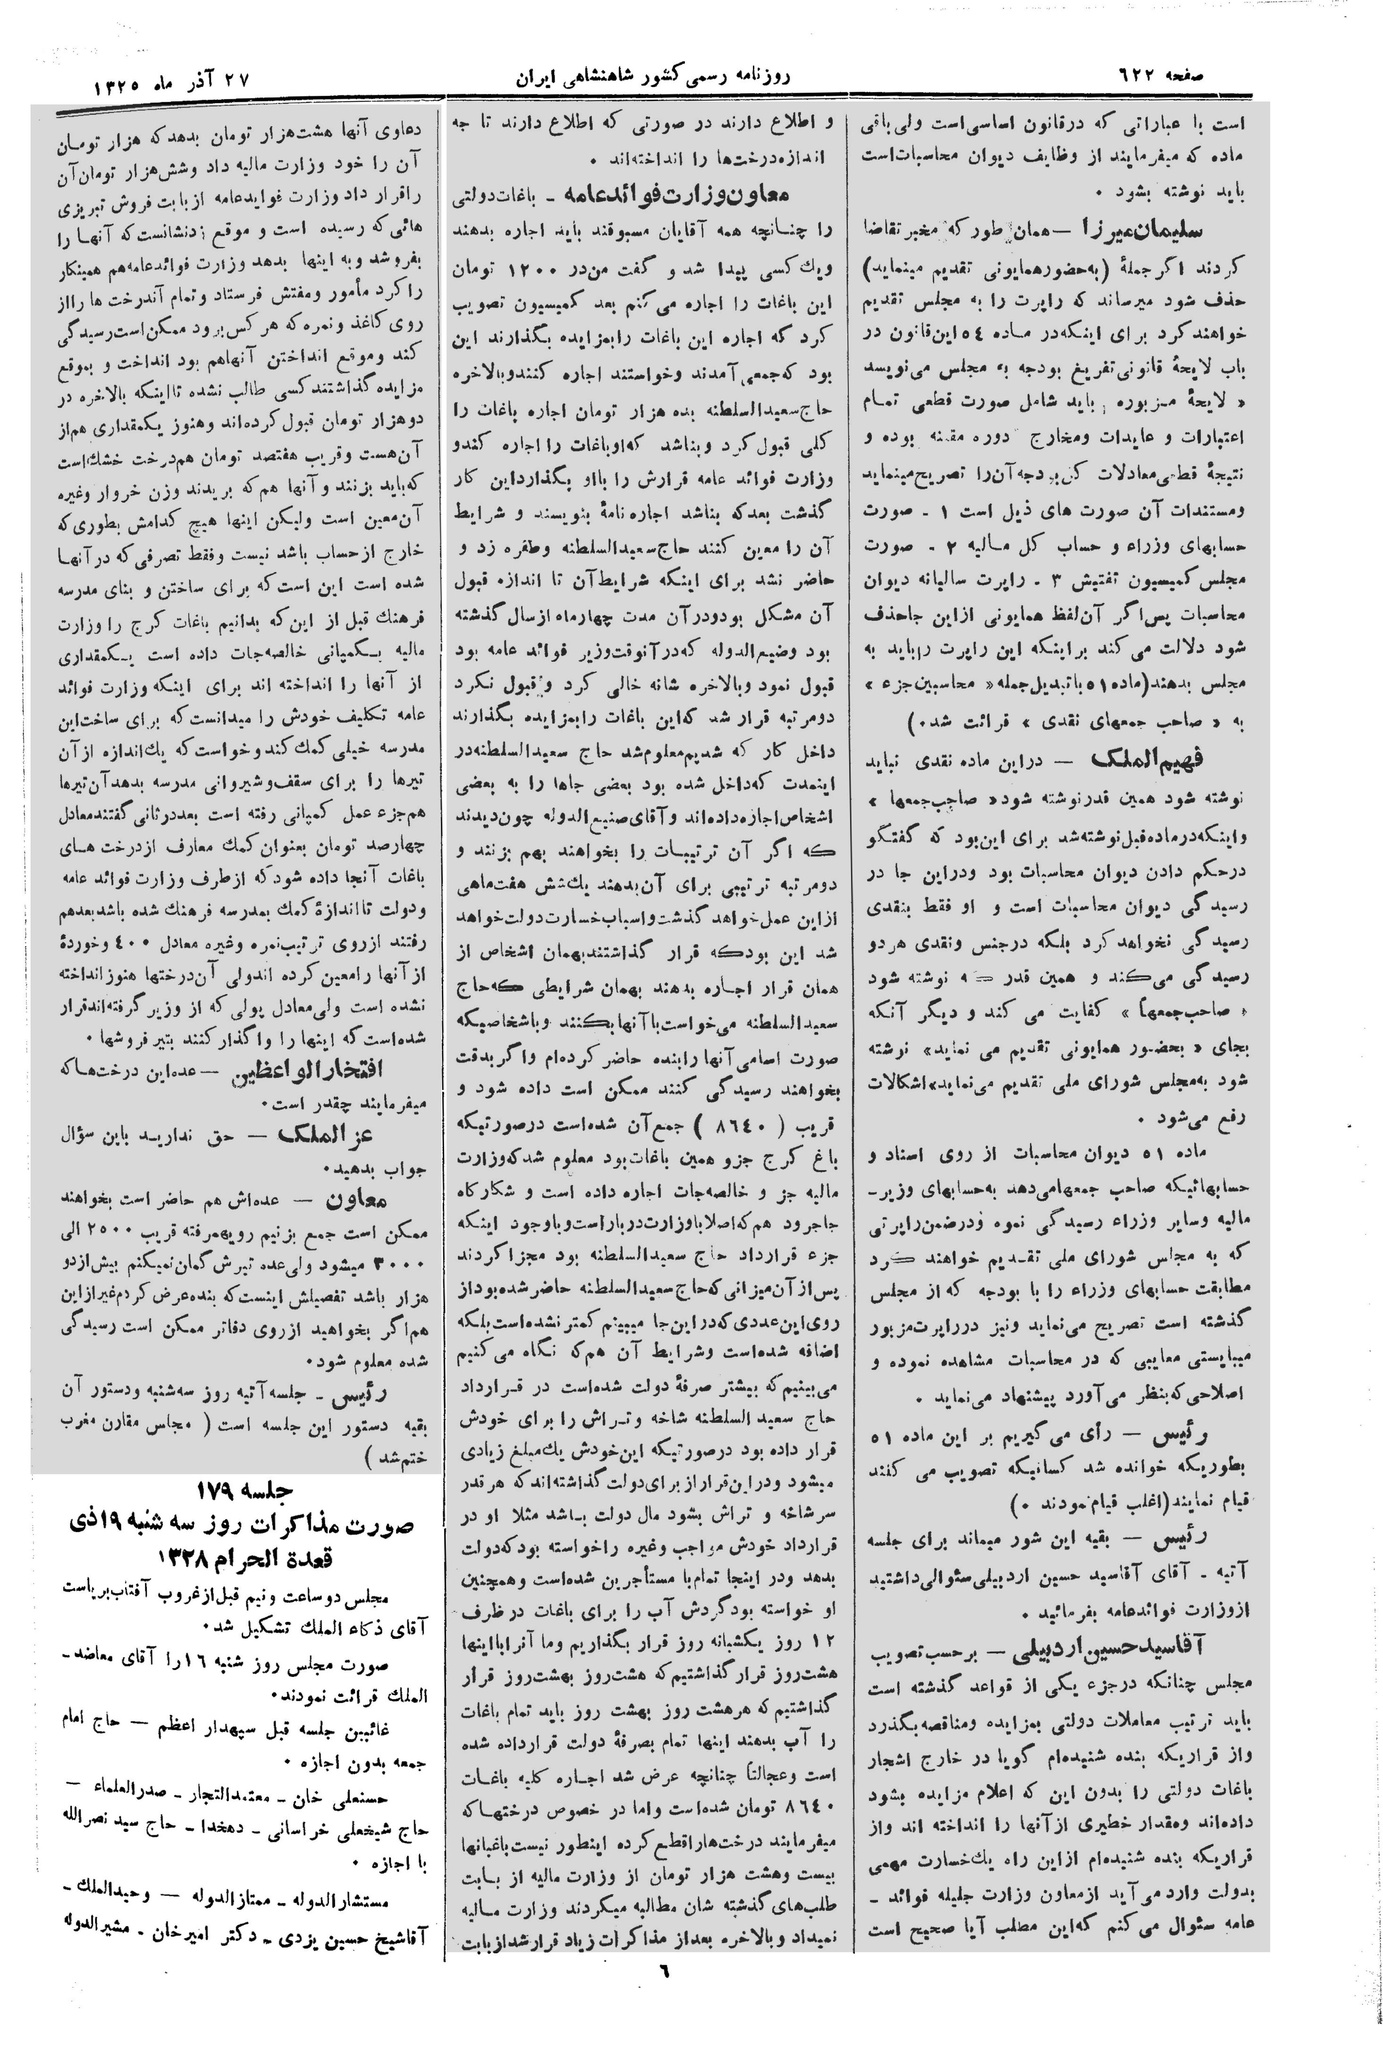 صفحه ٦٢٢
روزنامه رسمی کشور شاهنشاهی ایران
٢٧ آذر ماه ١٣٢٥
است با عباراتی که درقانون اساسی‌است ولی‌باقی
ماده که میفرمایند از وظایف دیوان محاسبات‌است
باید نوشته بشود .
سلیمان‌میرزا — همان طور که مخبر تقاضا
کردند اگر جملهٔ (به‌حضورهمایونی تقدیم مینماید)
حذف شود میرساند که راپرت را به مجلس تقدیم
خواهند کرد برای اینکه‌در ماده ٥٤ این‌قانون در
باب لایحهٔ قانونی‌تفریغ بودجه به مجلس می‌نویسد
« لایحهٔ مزبوره باید شامل صورت قطعی تمام
اعتبارات و عایدات ومخارج دوره مقننه بوده و
نتیجهٔ قطعی‌معادلات کل بودجه آن‌را تصریح‌مینماید
ومستندات آن صورت های ذیل است ١ ـ صورت
حسابهای وزراء و حساب کل مالیه ٢ ـ صورت
مجلس کمیسیون تفتیش ٣ ـ راپرت سالیانه دیوان
محاسبات پس‌اگر آن‌لفظ همایونی ازاین جاحذف
شود دلالت می‌کند براینکه این راپرت راباید به
مجلس بدهند(ماده٥١ باتبدیل‌جمله« محاسبین‌جزء »
به « صاحب جمعهای نقدی » قرائت شد.)
فهیم‌الملک — دراین ماده نقدی نباید
نوشته شود همین قدرنوشته شود« صاحب‌جمعها »
واینکه‌درماده‌قبل‌نوشته‌شد برای این‌بود که گفتگو
درحکم دادن دیوان محاسبات بود ودراین جا در
رسیدگی دیوان محاسبات است و او فقط بنقدی
رسیدگی نخواهدکرد بلکه درجنس ونقدی هردو
رسیدگی می‌کند و همین قدر که نوشته شود
« صاحب‌جمعها » کفایت می کند و دیگر آنکه
بجای « بحضور همایونی تقدیم می نماید» نوشته
شود به‌مجلس شورای ملی تقدیم می‌نماید»اشکالات
رفع می‌شود .
ماده ٥١ دیوان محاسبات از روی اسناد و
حسابهائیکه صاحب جمعهامی‌دهد به‌حسابهای وزیر-
مالیه وسایر وزراء رسیدگی نموه ودرضمن‌راپرتی
که به مجلس شورای ملی تقدیم خواهند کرد
مطابقت حسابهای وزراء را با بودجه که از مجلس
گذشته است تصریح می‌نماید ونیز درراپرت‌مزبور
میبایستی معایبی که در محاسبات مشاهده نموده و
اصلاحی‌که‌بنظر می‌آورد پیشنهاد می‌نماید .
رئیس — رأی می‌گیریم بر این ماده ٥١
بطوریکه خوانده شد کسانیکه تصویب می کنند
قیام نمایند(اغلب قیام‌نمودند .)
رئیس — بقیه این شور میماند برای جلسه
آتیه ـ آقای آقاسید حسین اردبیلی‌سئوالی‌داشتید
ازوزارت فوائدعامه بفرمائید .
آقاسیدحسین‌اردبیلی — برحسب تصویب
مجلس چنانکه درجزء یکی از قواعد گذشته است
باید ترتیب معاملات دولتی بمزایده ومناقصه‌بگذرد
واز قراریکه بنده شنیده‌ام گویا در خارج اشجار
باغات دولتی را بدون این که اعلام مزایده بشود
داده‌اند ومقدار خطیری ازآنها را انداخته اند واز
قراریکه بنده شنیده‌ام ازاین راه یک‌خسارت مهمی
بدولت وارد می‌آید ازمعاون وزارت جلیله فوائد ـ
عامه سئوال می‌کنم که‌این مطلب آیا صحیح است
و اطلاع دارند در صورتی که اطلاع دارند تا چه
اندازه‌درخت‌ها را انداخته‌اند .
معاون‌وزارت‌فوائدعامه ـ باغات‌دولتی
را چنانچه همه آقایان مسبوقند باید اجاره بدهند
ویک کسی پیدا شد و گفت من‌در ١٢٠٠ تومان
این باغات را اجاره می‌کنم بعد کمیسیون تصویب
کرد که اجاره این باغات رابمزایده بگذارند این
بود که‌جمعی آمدند وخواستند اجاره کنندوبالاخره
حاج‌سعیدالسلطنه بده هزار تومان اجاره باغات را
کلی قبول‌کرد وبناشد که‌اوباغات را اجاره کندو
وزارت فوائد عامه قرارش را بااو بگذارداین کار
گذشت بعدکه بناشد اجاره‌نامهٔ بنویسند و شرایط
آن را معین کنند حاج‌سعیدالسلطنه وطفره زد و
حاضر نشد برای اینکه شرایط‌آن تا اندازه قبول
آن مشکل بودودرآن مدت چهارماه ازسال گذشته
بود وضیع‌الدوله که‌درآنوقت‌وزیر فوائد عامه بود
قبول نمود وبالاخره شانه خالی کرد و قبول نکرد
دومرتبه قرار شد که‌این باغات رابمزایده بگذارند
داخل کار که شدیم‌معلوم‌شد حاج سعیدالسلطنه‌در
اینمدت که‌داخل شده بود بعضی جاها را به بعضی
اشخاص‌اجاره‌داده‌اند وآقای‌صنیع‌الدوله چون‌دیدند
که اگر آن ترتیبات را بخواهند بهم بزنند و
دومرتبه ترتیبی برای آن‌بدهند یک‌شش هفت‌ماهی
ازاین عمل‌خواهد گذشت‌واسباب‌خسارت‌دولت‌خواهد
شد این بودکه قرار گذاشتندبهمان اشخاص از
همان قرار اجاره بدهند بهمان شرایطی که‌حاج
سعیدالسلطنه می‌خواست‌باآنهابکنند وباشخاصیکه
صورت اسامی‌آنها رابنده حاضر کرده‌ام واگربدقت
بخواهند رسیدگی کنند ممکن است داده شود و
قریب ( ٨٦٤٠ ) جمع‌آن شده‌است درصورتیکه
باغ کرج جزو همین باغات‌بود معلوم شدکه‌وزارت
مالیه جز و خالصه‌جات اجاره داده است و شکارگاه
جاجرود هم‌که‌اصلا باوزارت‌درباراست‌وباوجود اینکه
جزء قرارداد حاج سعیدالسلطنه بود مجزاکردند
پس‌از‌آن‌میزانی‌که‌حاج‌سعیدالسلطنه حاضر شده‌بوداز
روی‌این‌عددی‌که‌دراین‌جا میبینم کمترنشده‌است‌بلکه
اضافه شده‌است وشرایط آن هم‌که نگاه می‌کنیم
می‌بینیم‌که بیشتر صرفهٔ دولت شده‌است در قرارداد
حاج سعیدالسلطنه شاخه وتراش را برای خودش
قرار داده بود درصورتیکه این‌خودش یک‌مبلغ زیادی
میشود ودراین‌قراراز برای‌دولت گذاشته‌اندکه هرقدر
سرشاخه و تراش بشود مال دولت باشد مثلا او در
قرارداد خودش مواجب وغیره راخواسته بودکه‌دولت
بدهد ودر اینجا تمام‌با مستأجرین شده‌است وهمچنین
او خواسته بودگردش آب را برای باغات درظرف
١٢ روز یکشبانه روز قرار بگذاریم وما آنراباینها
هشت‌روز قرارگذاشتیم‌که هشت‌روز بهشت‌روز قرار
گذاشتیم‌که هرهشت روز بهشت روز باید تمام باغات
را آب بدهند اینها تمام بصرفهٔ دولت قرارداده شده
است وعجالتاً چنانچه عرض شد اجاره کلیه باغات
٨٦٤٠ تومان شده‌است واما در خصوص درختهاکه
میفرمایند درخت‌هاراقطع‌کرده اینطور نیست‌باغبانها
بیست وهشت هزار تومان از وزارت مالیه از بابت
طلب‌های گذشته شان مطالبه میکردند وزارت مالیه
نمیداد وبالاخره بعداز مذاکرات زیاد قرارشدازبابت
دعاوی آنها هشت‌هزار تومان بدهدکه هزار تومان
آن را خود وزارت مالیه داد وشش‌هزار تومان‌آن
راقرار داد وزارت فوایدعامه از بابت فروش تبریزی
هائی‌که رسیده است و موقع زدنشانست‌که آنها را
بفروشد وبه اینها بدهد وزارت فوائدعامه‌هم همینکار
راکرد مأمور ومفتش فرستاد وتمام آندرخت هارااز
روی کاغذ ونمره که هرکس برود ممکن‌است‌رسیدگی
کند وموقع انداختن آنهاهم بود انداخت و بموقع
مزایده گذاشتندکسی طالب نشده تااینکه بالاخره در
دوهزار تومان قبول‌کرده‌اند وهنوز یکمقداری هم‌از
آن‌هست وقریب هفتصد تومان هم‌درخت خشک‌است
که‌باید بزنند و آنها هم‌که بریدند وزن خروار وغیره
آن‌معین است ولیکن اینها هیچ کدامش بطوری‌که
خارج ازحساب باشد نیست وفقط تصرفی‌که درآنها
شده است این است‌که برای ساختن و بنای مدرسه
فرهنک قبل از این‌که بدانیم باغات کرج را وزارت
مالیه بکمپانی خالصه‌جات داده است یکمقداری
از آنها را انداخته اند برای اینکه وزارت فوائد
عامه تکلیف خودش را میدانست‌که برای ساخت‌این
مدرسه خیلی‌کمک‌کندوخواست‌که یک‌اندازه ازآن
تیرها را برای سقف‌وشیروانی مدرسه بدهدآن‌تیرها
هم‌جزء عمل کمپانی رفته است بعددرثانی گفتندمعادل
چهارصد تومان بعنوان کمک معارف ازدرخت های
باغات آنجا داده شودکه ازطرف وزارت فوائد عامه
ودولت تااندازهٔ کمک بمدرسه فرهنگ شده باشدبعدهم
رفتند ازروی ترتیب‌نمره وغیره معادل ٤٠٠ وخوردهٔ
ازآنها رامعین کرده اندولی آن‌درختها هنوزانداخته
نشده است ولی‌معادل پولی که از وزیر گرفته‌اندقرار
شده‌است‌که اینها را واگذار کنند بتیرفروشها .
افتخارالواعظین — عده‌این درخت‌هاکه
میفرمایند چقدر است .
عزالملک — حق ندارید باین سؤال
جواب بدهید.
معاون — عده‌اش هم حاضر است بخواهند
ممکن است جمع بزنیم رویهمرفته قریب ٢٥٠٠ الی
٣٠٠٠ میشود ولی‌عده تیرش گمان‌نمیکنم بیش‌ازدو
هزار باشد تفصیلش اینست‌که بنده‌عرض‌کردم‌غیرازاین
هم‌اگر بخواهید ازروی دفاتر ممکن است رسیدگی
شده معلوم شود.
رئیس ـ جلسه آتیه روز سه‌شنبه ودستور آن
بقیه دستور این جلسه است ( مجلس مقارن مغرب
ختم‌شد )
جلسه ١٧٩
صورت مذاکرات روز سه شنبه ١٩ذی
قعدة الحرام ١٣٢٨
مجلس دوساعت ونیم قبل‌ازغروب آفتاب‌بریاست
آقای ذکاء الملک تشکیل شد.
صورت مجلس روز شنبه ١٦را آقای معاضد ـ
الملک قرائت نمودند.
غائبین جلسه قبل سپهدار اعظم — حاج امام
جمعه بدون اجازه .
حسنعلی خان ـ معتمدالتجار ـ صدرالعلماء —
حاج شیخعلی خراسانی ـ دهخدا ـ حاج سید نصرالله
با اجازه .
مستشارالدوله ـ ممتازالدوله — وحیدالملک ـ
آقاشیخ حسین یزدی ـ دکتر امیرخان ـ مشیرالدوله
٦